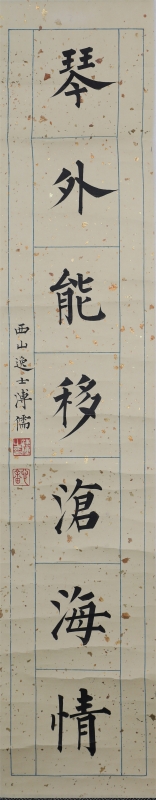 琴外能移滄海情
西山逸士溥儒